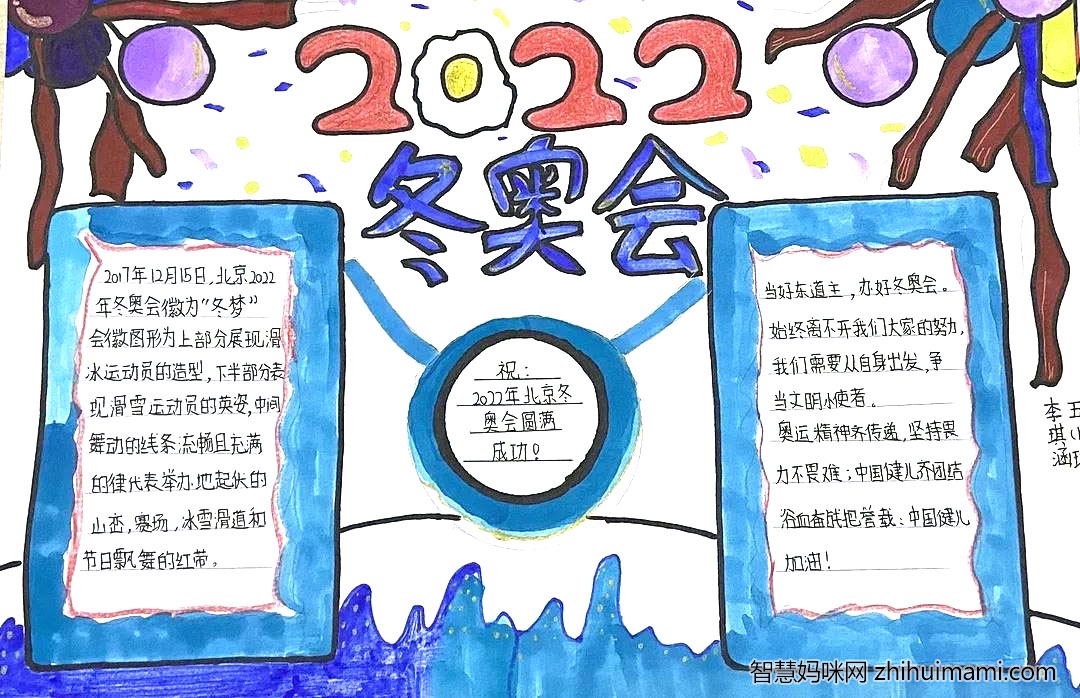 2022
冬奥会
2017年12月15日,北京2022
年冬奥会徽为“冬梦”
会徽图形为上部分展现滑
冰运动员的造型,下半部分表
现滑雪运动员的英姿,中间
舞动的线条流畅且充满
的律代表举办地起伏的
山峦,赛场,冰雪滑道和
节日飘舞的红带。
祝:
2022年北京冬
奥会圆满
成功!
当好东道主,办好冬奥会。
始终离不开我们大家的努力,
我们需要从自身出发,争
当文明小使者。
奥运精神齐传递,坚持畏
力不畏难;中国健儿齐团结
浴血奋战把誉载:中国健儿
加油!
李
琪
涵
智慧妈咪网 zhihuimami.com